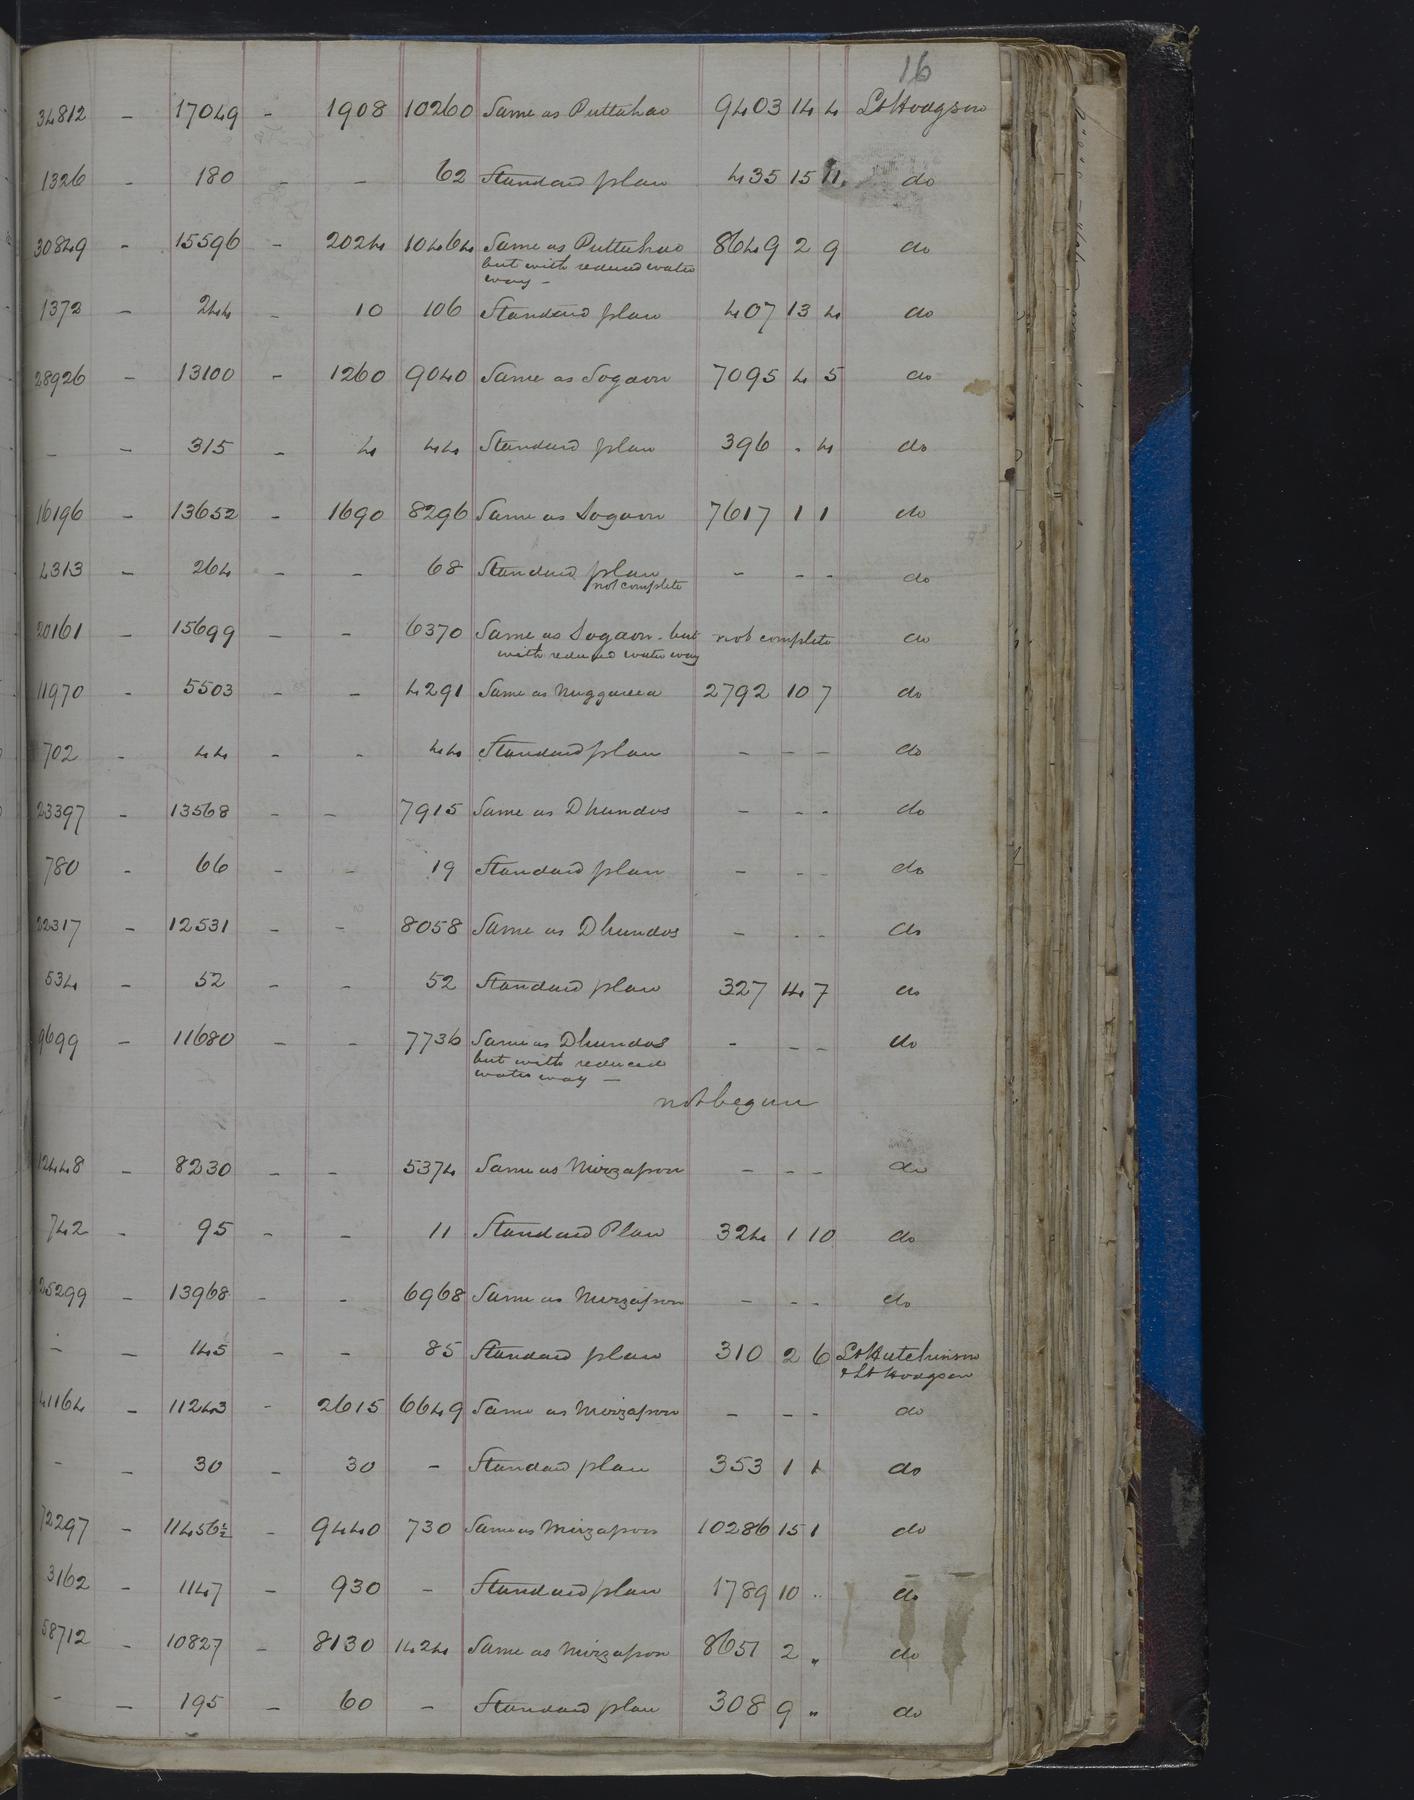 16
34812 - 17049 - 1908 10260 Same as Puttahao 9403 14 4 Lt Hodgson
1326 - 180 - - 62 Standard plan 435 15 11 do
30849 - 15596 - 2024 10464 Same as Puttahao 8649 2 9 do
but with reduced water
way -
1372 - 244 - 10 106 Standard plan 407 13 4 do
28926 - 13100 - 1260 9040 Same as Sogaon 7095 4 5 do
- - 315 - 4 44 Standard plan 396 . 4 do
16196 - 13652 - 1690 8296 Same as Sogaon 7617 1 1 do
4313 - 264 - - 68 Standard plan - - - do
not complete
20161 - 15699 - - 6370 Same as Sogaon - but not complete do
with reduced water way
11970 - 5503 - - 4291 Same as 2792 10 7 do
702 - 44 - - 44 Standard plan - - - do
23397 - 13568 - - 7915 Same as Dhundos - - - do
780 - 66 - - 19 Standard plan - - - do
22317 - 12531 - - 8058 Same as Dhundos - - - do
534 - 52 - - 52 Standard plan 327 14 7 do
9699 - 11680 - - 7736 Same as Dhundos - - - do
but with reduced
water way -
not begun
12448 - 8230 - - 5374 Same as Mirzapore - - - do
742 - 95 - - 11 Standard Plan 324 1 10 do
25299 - 13968 - - 6968 Same as Mirzapore - - - do
- - 145 - - 85 Standard plan 310 2 6 Lt Hutchinson
& Lt Hodgson
41164 - 11243 - 2615 6649 Same as Mirzapore - - - do
- - 30 - 30 - Standard plan 353 1 1 do
72297 - 11456½ - 9440 730 Same as Mirzapore 10286 15 1 do
3162 - 1147 - 930 - Standard plan 1789 10 .. do
58712 - 10827 - 8130 1424 Same as Mirzapore 8651 2 " do
- - 195 - 60 - Standard plan 308 9 " do